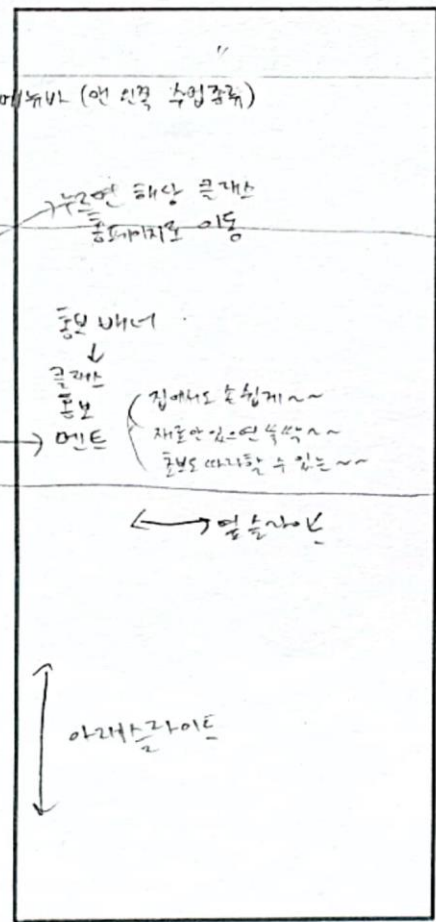 "
메뉴바 (맨 왼쪽 수업종류)
누르면 해당 클래스
홈페이지로 이동
홍보 배너
클래스
홍보
멘트
집에서도 손쉽게~~
재료만 있으면 뚝딱~~
초보도 따라할 수 있는~~
옆슬라이드
아래슬라이드